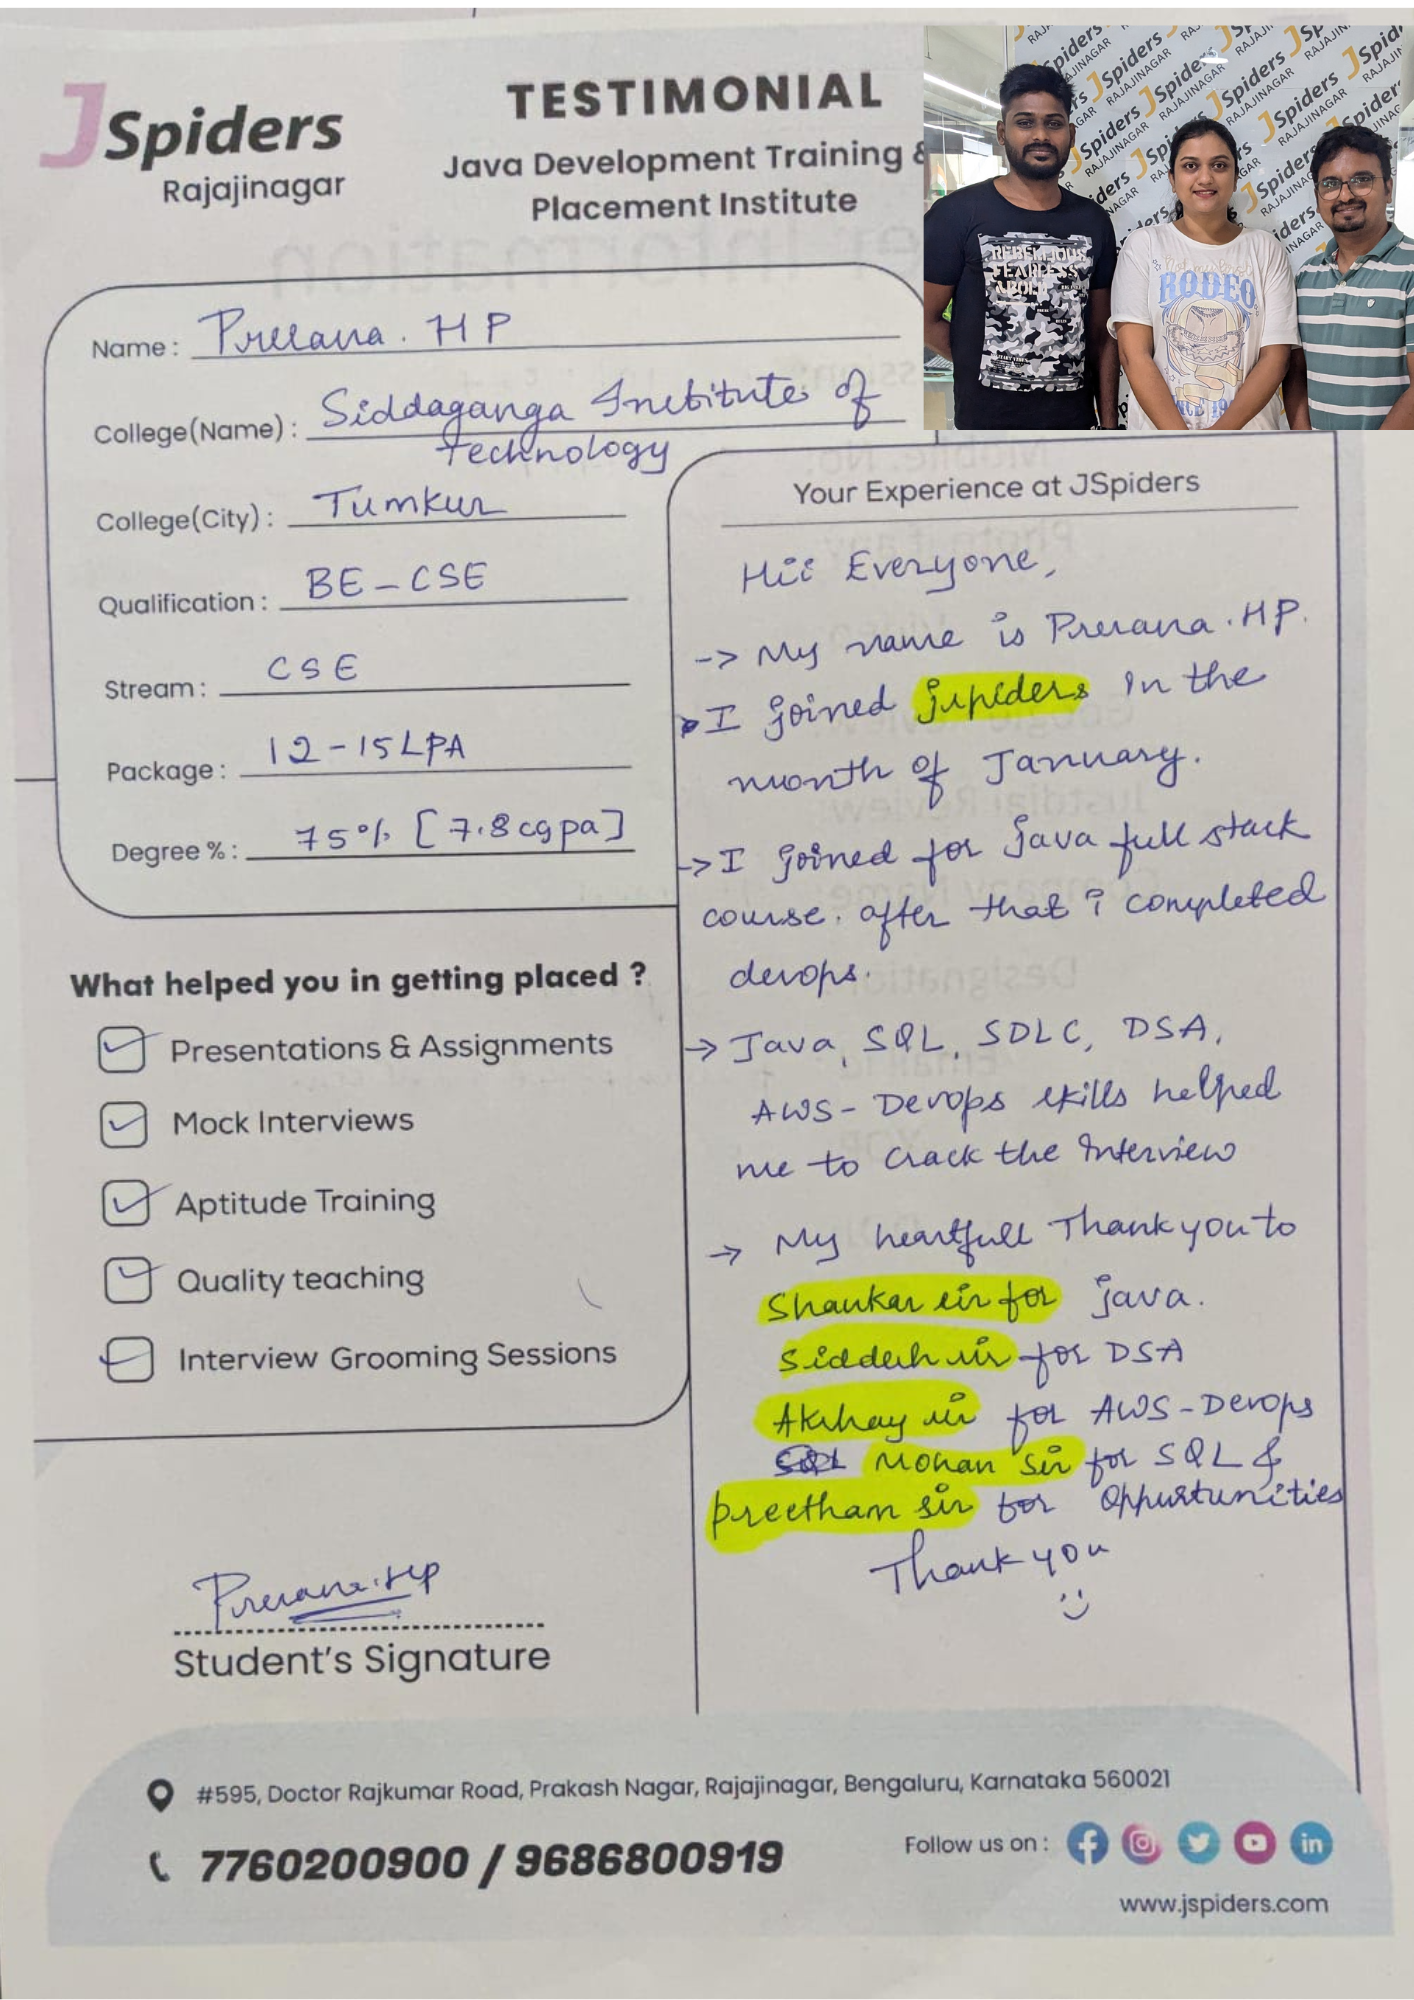 JSpiders
Rajajinagar
TESTIMONIAL
Java Development Training &
Placement Institute
Name : Prerana . HP
College(Name) : Siddaganga Institute of
technology
College(City) : Tumkur
Qualification : BE - CSE
Stream : CSE
Package : 12-15 LPA
Degree % : 75% [7.8 cgpa]
What helped you in getting placed ?
Presentations & Assignments
Mock Interviews
Aptitude Training
Quality teaching
Interview Grooming Sessions
Prerana.HP
Student's Signature
Your Experience at JSpiders
Hii Everyone,
-> My name is Prerana . HP.
I joined jspiders In the
month of January.
-> I joined for java full stack
course. after that i completed
devops.
-> Java, SQL, SDLC, DSA,
AWS - Devops skills helped
me to crack the Interview
-> My heartfull Thank you to
Shankar sir for java.
Siddesh sir for DSA
Akshay sir for AWS - Devops
Mohan sir for SQL &
preetham sir for Oppurtunities
Thank you
:)
#595, Doctor Rajkumar Road, Prakash Nagar, Rajajinagar, Bengaluru, Karnataka 560021
7760200900 / 9686800919
Follow us on :
www.jspiders.com
REBELLIOUS
FEARLESS
RODEO